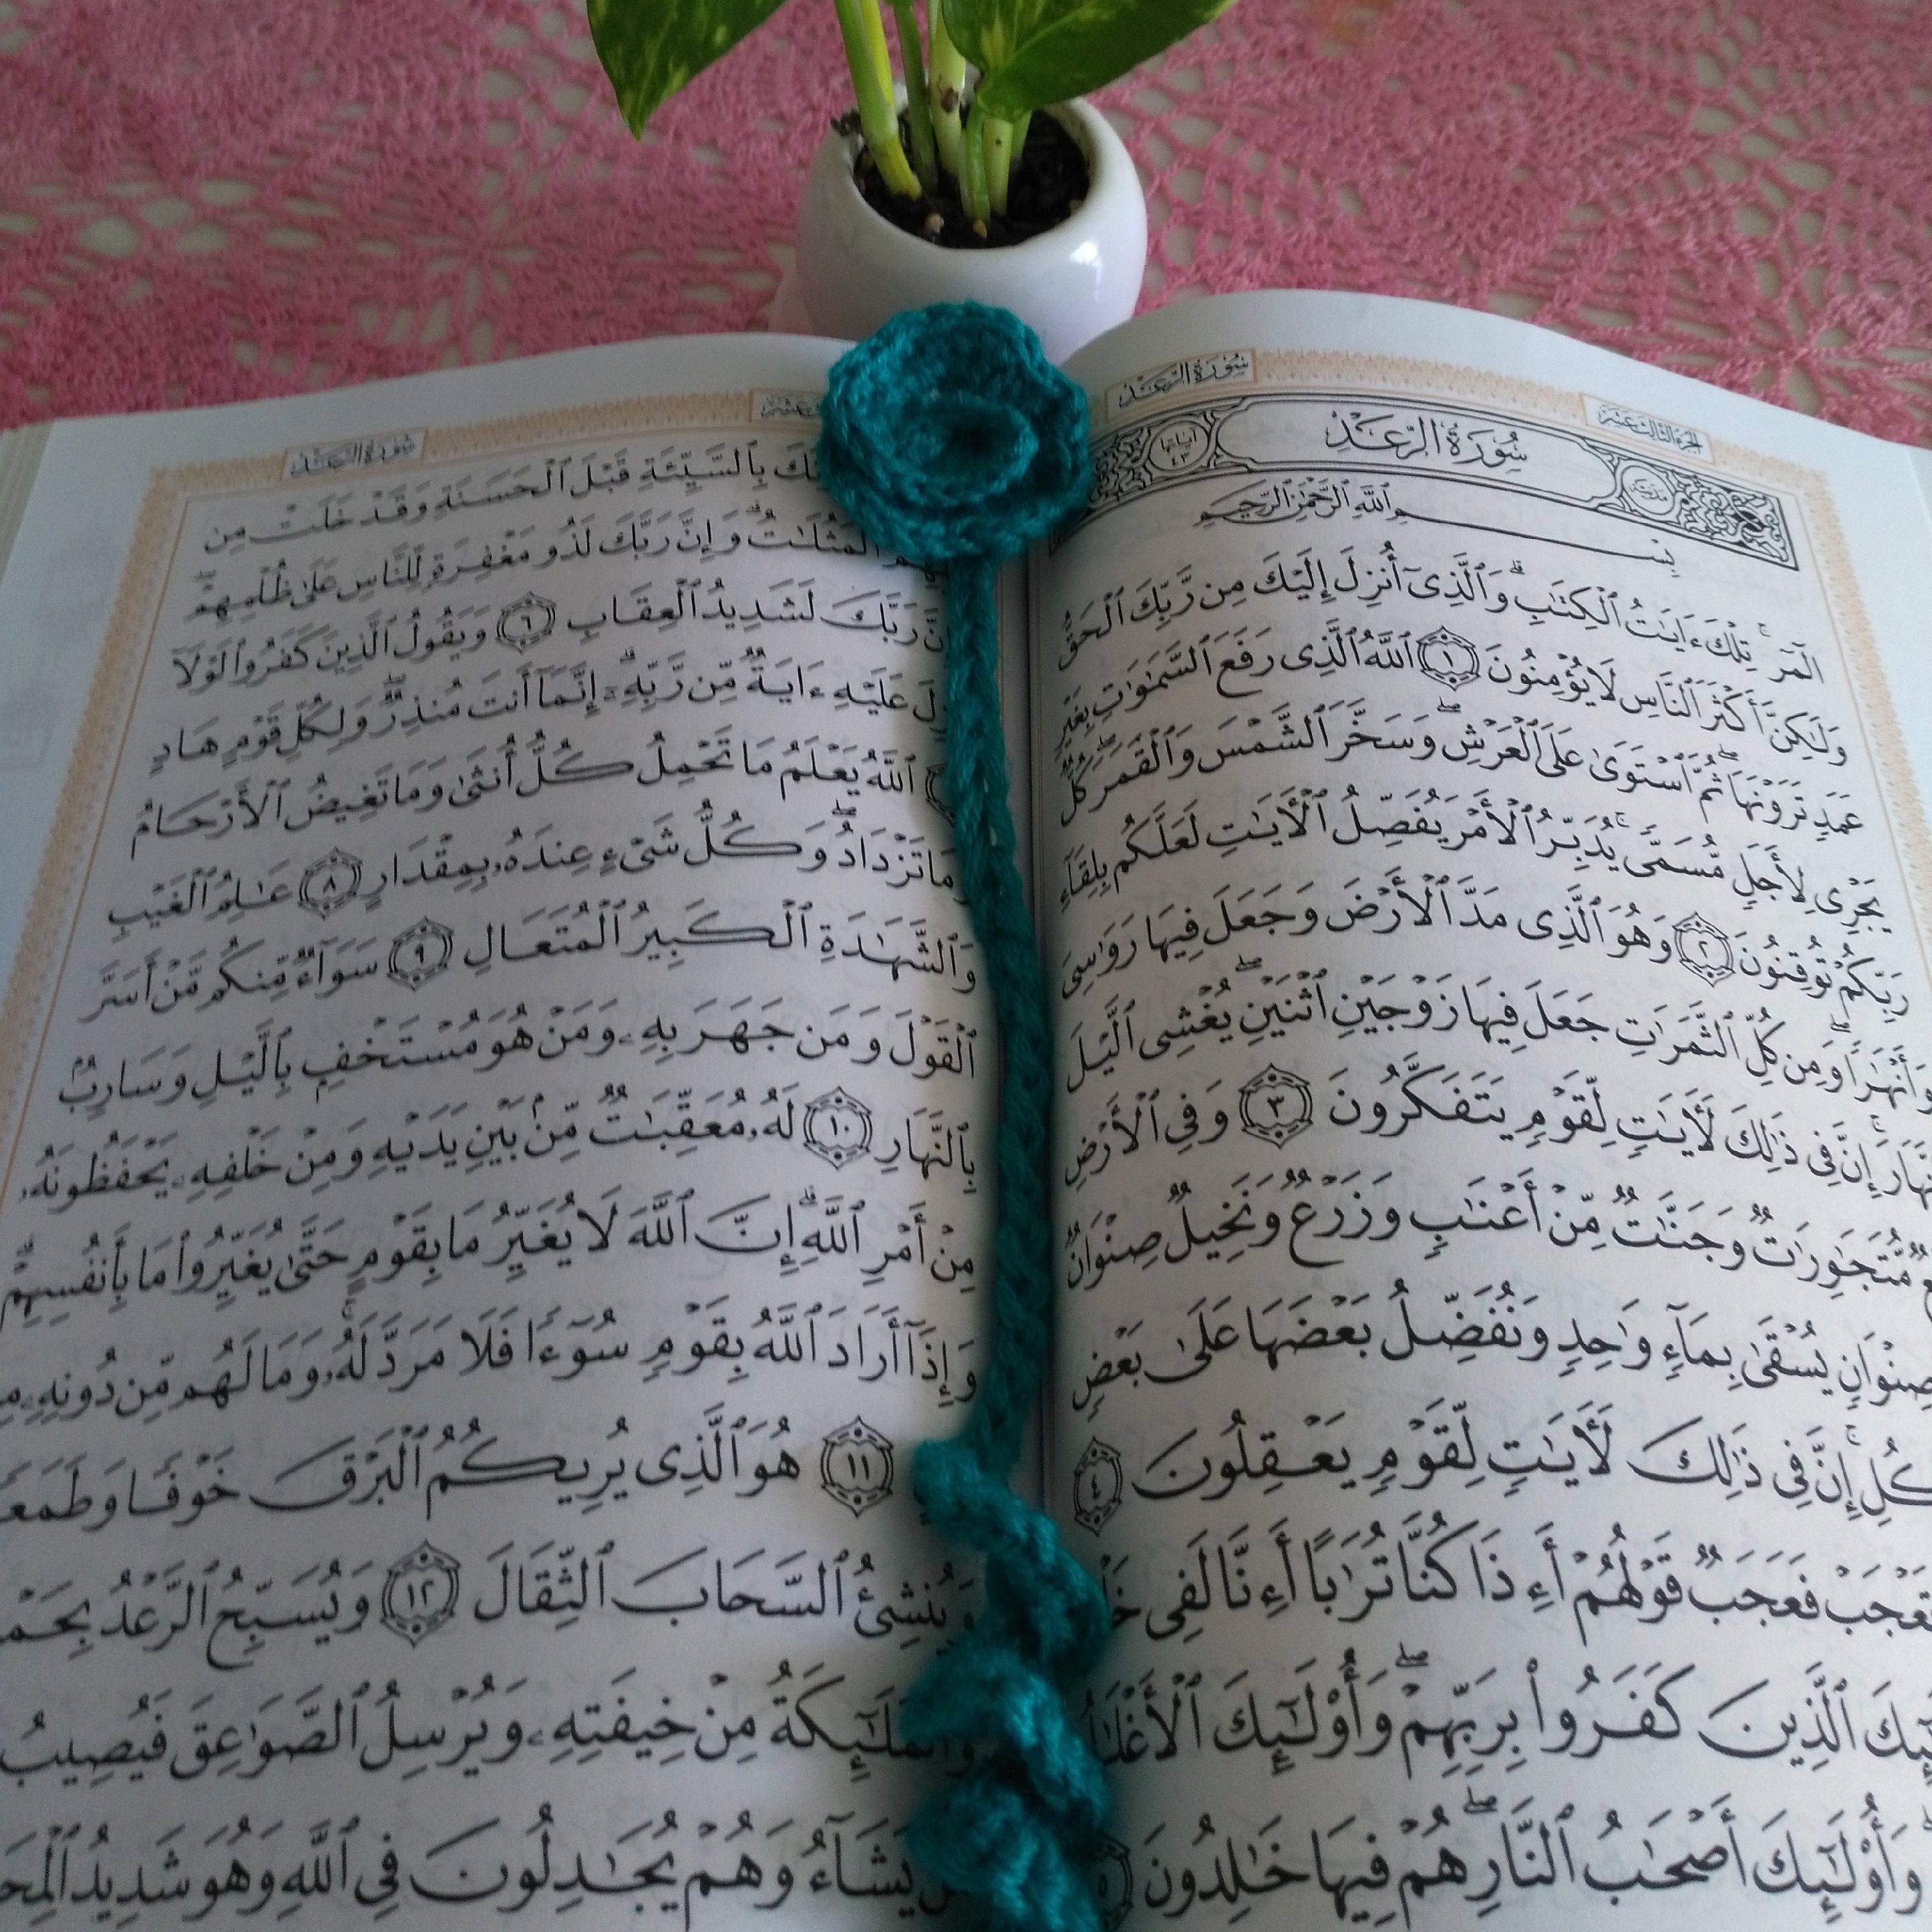 سُورَةُ الرَّعْدِ
الجزء الثالث عشر
سُورَةُ الرَّعْدِ
آياتها ٤٣
بِسْمِ ٱللَّهِ ٱلرَّحْمَٰنِ ٱلرَّحِيمِ
الٓمٓرۚ تِلْكَ ءَايَٰتُ ٱلْكِتَٰبِۗ وَٱلَّذِىٓ أُنزِلَ إِلَيْكَ مِن رَّبِّكَ ٱلْحَقُّ
وَلَٰكِنَّ أَكْثَرَ ٱلنَّاسِ لَا يُؤْمِنُونَ ١ ٱللَّهُ ٱلَّذِى رَفَعَ ٱلسَّمَٰوَٰتِ بِغَيْرِ
عَمَدٍ تَرَوْنَهَاۖ ثُمَّ ٱسْتَوَىٰ عَلَى ٱلْعَرْشِۖ وَسَخَّرَ ٱلشَّمْسَ وَٱلْقَمَرَۖ كُلٌّ
يَجْرِى لِأَجَلٍ مُّسَمًّىۚ يُدَبِّرُ ٱلْأَمْرَ يُفَصِّلُ ٱلْءَايَٰتِ لَعَلَّكُم بِلِقَآءِ
رَبِّكُمْ تُوقِنُونَ ٢ وَهُوَ ٱلَّذِى مَدَّ ٱلْأَرْضَ وَجَعَلَ فِيهَا رَوَٰسِىَ
وَأَنْهَٰرًاۖ وَمِن كُلِّ ٱلثَّمَرَٰتِ جَعَلَ فِيهَا زَوْجَيْنِ ٱثْنَيْنِۖ يُغْشِى ٱلَّيْلَ
ٱلنَّهَارَۚ إِنَّ فِى ذَٰلِكَ لَءَايَٰتٍ لِّقَوْمٍ يَتَفَكَّرُونَ ٣ وَفِى ٱلْأَرْضِ
مُّتَجَٰوِرَٰتٌ وَجَنَّٰتٌ مِّنْ أَعْنَٰبٍ وَزَرْعٌ وَنَخِيلٌ صِنْوَانٌ
صِنْوَانٍ يُسْقَىٰ بِمَآءٍ وَٰحِدٍ وَنُفَضِّلُ بَعْضَهَا عَلَىٰ بَعْضٍ
إِنَّ فِى ذَٰلِكَ لَءَايَٰتٍ لِّقَوْمٍ يَعْقِلُونَ ٤
فَعَجَبٌ قَوْلُهُمْ أَءِذَا كُنَّا تُرَٰبًا أَءِنَّا لَفِى
ٱلَّذِينَ كَفَرُوا۟ بِرَبِّهِمْۖ وَأُو۟لَٰٓئِكَ
وَأُو۟لَٰٓئِكَ أَصْحَٰبُ ٱلنَّارِۖ هُمْ فِيهَا خَٰلِدُونَ ٥
سُورَةُ الرَّعْدِ
بِٱلسَّيِّئَةِ قَبْلَ ٱلْحَسَنَةِ وَقَدْ خَلَتْ مِن
ٱلْمَثُلَٰتُۗ وَإِنَّ رَبَّكَ لَذُو مَغْفِرَةٍ لِّلنَّاسِ عَلَىٰ ظُلْمِهِمْۖ
رَبَّكَ لَشَدِيدُ ٱلْعِقَابِ ٦ وَيَقُولُ ٱلَّذِينَ كَفَرُوا۟ لَوْلَآ
عَلَيْهِ ءَايَةٌ مِّن رَّبِّهِۦٓۗ إِنَّمَآ أَنتَ مُنذِرٌۖ وَلِكُلِّ قَوْمٍ هَادٍ
ٱللَّهُ يَعْلَمُ مَا تَحْمِلُ كُلُّ أُنثَىٰ وَمَا تَغِيضُ ٱلْأَرْحَامُ
وَمَا تَزْدَادُۖ وَكُلُّ شَىْءٍ عِندَهُۥ بِمِقْدَارٍ ٨ عَٰلِمُ ٱلْغَيْبِ
وَٱلشَّهَٰدَةِ ٱلْكَبِيرُ ٱلْمُتَعَالِ ٩ سَوَآءٌ مِّنكُم مَّنْ أَسَرَّ
ٱلْقَوْلَ وَمَن جَهَرَ بِهِۦ وَمَنْ هُوَ مُسْتَخْفٍۭ بِٱلَّيْلِ وَسَارِبٌۢ
بِٱلنَّهَارِ ١٠ لَهُۥ مُعَقِّبَٰتٌ مِّنۢ بَيْنِ يَدَيْهِ وَمِنْ خَلْفِهِۦ يَحْفَظُونَهُۥ
مِنْ أَمْرِ ٱللَّهِۗ إِنَّ ٱللَّهَ لَا يُغَيِّرُ مَا بِقَوْمٍ حَتَّىٰ يُغَيِّرُوا۟ مَا بِأَنفُسِهِمْۗ
وَإِذَآ أَرَادَ ٱللَّهُ بِقَوْمٍ سُوٓءًا فَلَا مَرَدَّ لَهُۥۚ وَمَا لَهُم مِّن دُونِهِۦ
١١ هُوَ ٱلَّذِى يُرِيكُمُ ٱلْبَرْقَ خَوْفًا وَطَمَعًا
وَيُنشِئُ ٱلسَّحَابَ ٱلثِّقَالَ ١٢ وَيُسَبِّحُ ٱلرَّعْدُ
وَٱلْمَلَٰٓئِكَةُ مِنْ خِيفَتِهِۦ وَيُرْسِلُ ٱلصَّوَٰعِقَ فَيُصِيبُ
يَشَآءُ وَهُمْ يُجَٰدِلُونَ فِى ٱللَّهِ وَهُوَ شَدِيدُ